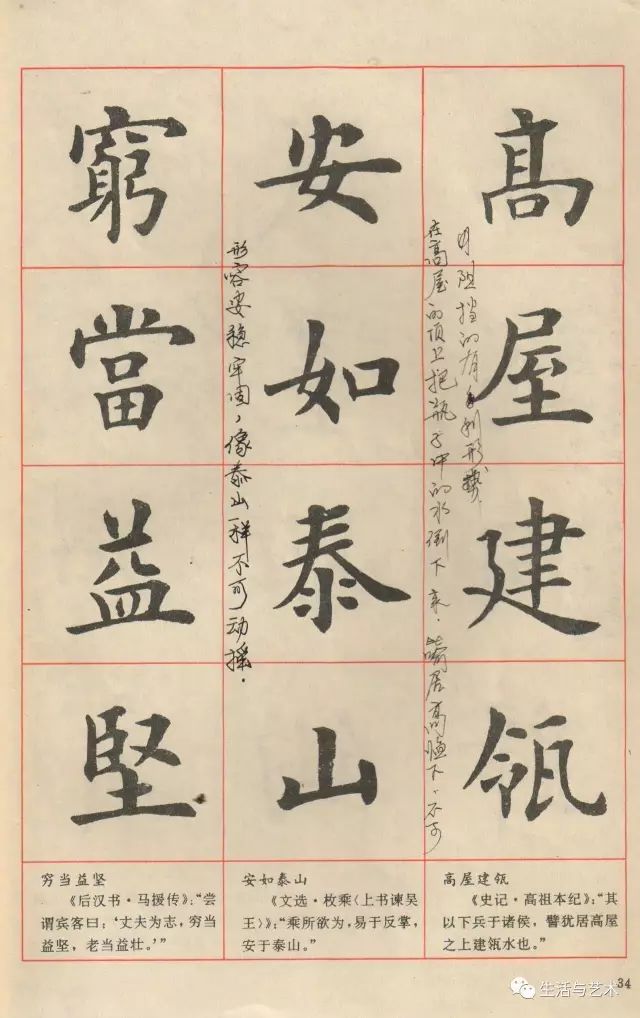 高屋建瓴
安如泰山
窮當益堅
在高屋的顶上把瓶子中的水倒下来．喻居高临下，不可
阻挡的有利形势
形容安稳牢固，像泰山一样不可动摇．
穷当益坚
《后汉书·马援传》：“尝
谓宾客曰：‘丈夫为志，穷当
益坚，老当益壮。’”
安如泰山
《文选·枚乘〈上书谏吴
王〉》：“乘所欲为，易于反掌，
安于泰山。”
高屋建瓴
《史记·高祖本纪》：“其
以下兵于诸侯，譬犹居高屋
之上建瓴水也。”
34
生活与艺术